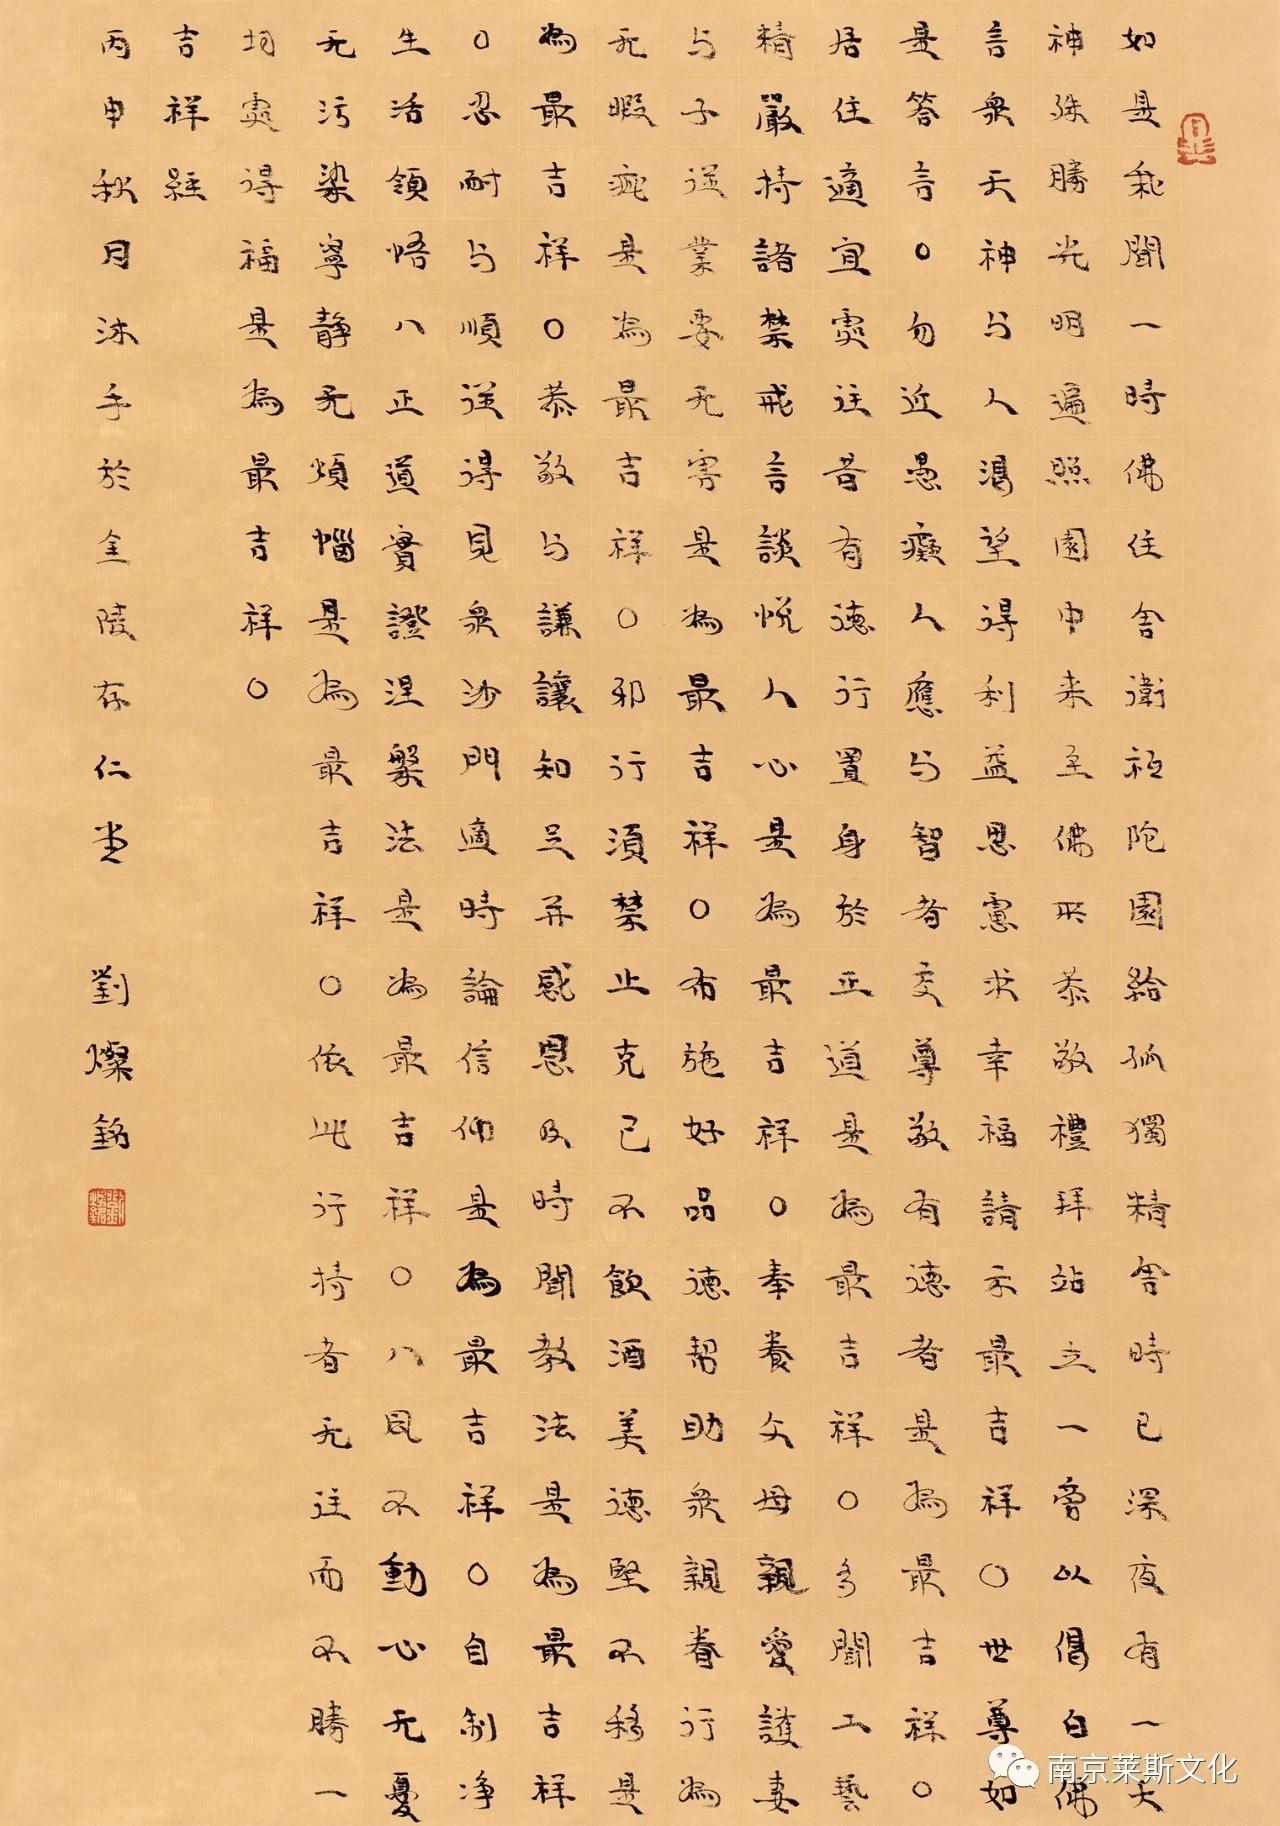 如是我聞一時佛住舍衛祗陀園給孤獨精舍時已深夜有一天
神殊勝光明遍照園中来至佛所恭敬禮拜站立一旁以偈白佛
言衆天神与人渴望得利益思慮求幸福請示最吉祥〇世尊如
是答言〇勿近愚癡人應与智者交尊敬有德者是為最吉祥〇
居住適宜處往昔有德行置身於正道是為最吉祥〇多聞工藝
精嚴持諸禁戒言談悦人心是為最吉祥〇奉養父母親愛護妻
与子從業要无害是為最吉祥〇布施好品德幫助衆親眷行為
无瑕疵是為最吉祥〇邪行須禁止克己不飲酒美德堅不移是
為最吉祥〇恭敬与謙讓知足并感恩及時聞教法是為最吉祥
〇忍耐与順從得見衆沙門適時論信仰是為最吉祥〇自制净
生活領悟八正道實證涅槃法是為最吉祥〇八風不動心无憂
无污染寧静无煩惱是為最吉祥〇依此行持者无往而不勝一
切處得福是為最吉祥〇
吉祥經
丙申秋月沐手於金陵存仁堂 劉燦銘
南京莱斯文化